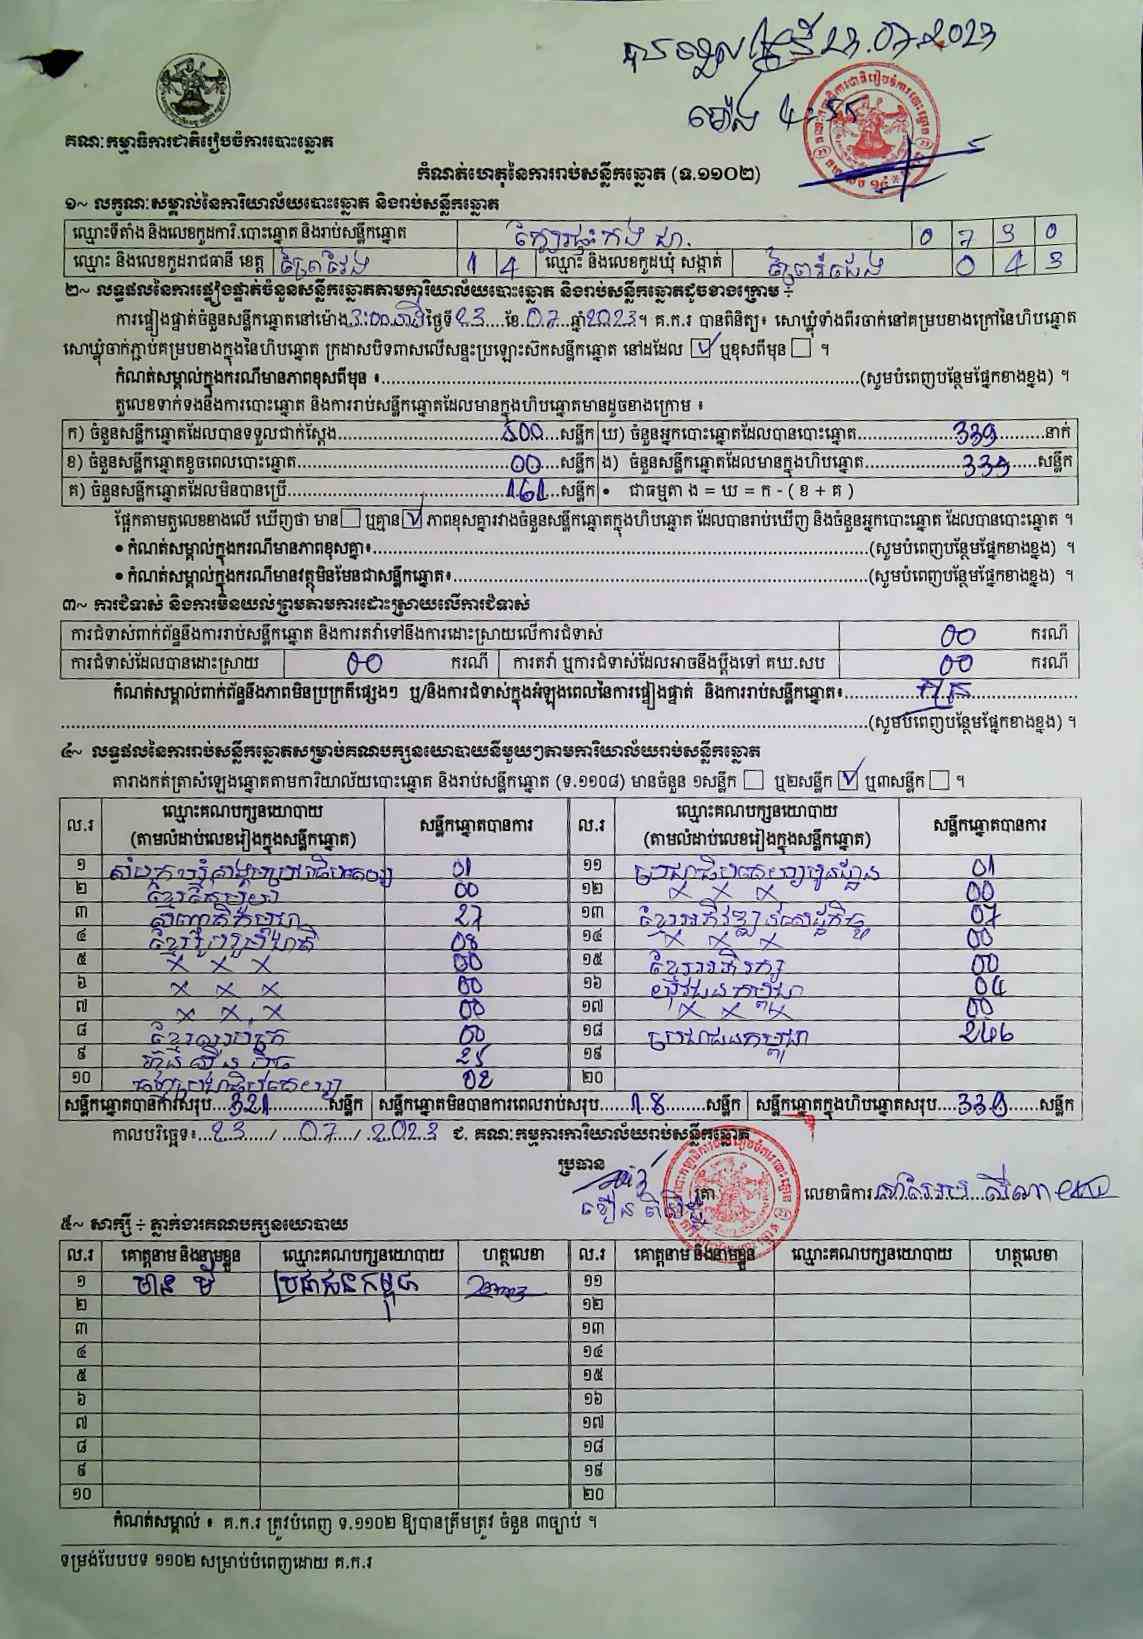 គណៈកម្មាធិការជាតិរៀបចំការបោះឆ្នោត
23.07.2023
ម៉ោង 4:55
កំណត់ហេតុនៃការរាប់សន្លឹកឆ្នោត (ទ.១១០២)
១~ លក្ខណៈសម្គាល់នៃការិយាល័យបោះឆ្នោត និងរាប់សន្លឹកឆ្នោត
ឈ្មោះទីតាំង និងលេខកូដការិ.បោះឆ្នោត និងរាប់សន្លឹកឆ្នោត 0 7 3 0
ឈ្មោះ និងលេខកូដរាជធានី ខេត្ត ព្រៃវែង 1 4 ឈ្មោះ និងលេខកូដឃុំ សង្កាត់ 0 4 3
២~ លទ្ធផលនៃការផ្ទៀងផ្ទាត់ចំនួនសន្លឹកឆ្នោតតាមការិយាល័យបោះឆ្នោត និងរាប់សន្លឹកឆ្នោតដូចខាងក្រោម ÷
ការផ្ទៀងផ្ទាត់ចំនួនសន្លឹកឆ្នោតនៅម៉ោង 3:00 នាទី ថ្ងៃទី 23 ខែ 07 ឆ្នាំ 2023។ គ.ក.រ បានពិនិត្យ៖ សោឃ្លុំទាំងពីរចាក់នៅគម្របខាងក្រៅនៃហិបឆ្នោត
សោឃ្លុំចាក់ភ្ជាប់គម្របខាងក្នុងនៃហិបឆ្នោត ក្រដាសបិទពាសលើសន្ទះប្រឡោះស៊កសន្លឹកឆ្នោត នៅដដែល ☑ ឬខុសពីមុន ☐ ។
កំណត់សម្គាល់ក្នុងករណីមានភាពខុសពីមុន ៖ (សូមបំពេញបន្ថែមផ្នែកខាងខ្នង) ។
តួលេខទាក់ទងនឹងការបោះឆ្នោត និងការរាប់សន្លឹកឆ្នោតដែលមានក្នុងហិបឆ្នោតមានដូចខាងក្រោម ៖
ក) ចំនួនសន្លឹកឆ្នោតដែលបានទទួលជាក់ស្តែង 500 សន្លឹក ឃ) ចំនួនអ្នកបោះឆ្នោតដែលបានបោះឆ្នោត 339 នាក់
ខ) ចំនួនសន្លឹកឆ្នោតខូចពេលបោះឆ្នោត 00 សន្លឹក ង) ចំនួនសន្លឹកឆ្នោតដែលមានក្នុងហិបឆ្នោត 339 សន្លឹក
គ) ចំនួនសន្លឹកឆ្នោតដែលមិនបានប្រើ 161 សន្លឹក • ជាធម្មតា ង = ឃ = ក - ( ខ + គ )
ផ្អែកតាមតួលេខខាងលើ ឃើញថា មាន ☐ ឬគ្មាន ☑ ភាពខុសគ្នារវាងចំនួនសន្លឹកឆ្នោតក្នុងហិបឆ្នោត ដែលបានរាប់ឃើញ និងចំនួនអ្នកបោះឆ្នោត ដែលបានបោះឆ្នោត ។
• កំណត់សម្គាល់ក្នុងករណីមានភាពខុសគ្នា៖ (សូមបំពេញបន្ថែមផ្នែកខាងខ្នង) ។
• កំណត់សម្គាល់ក្នុងករណីមានវត្ថុមិនមែនជាសន្លឹកឆ្នោត៖ (សូមបំពេញបន្ថែមផ្នែកខាងខ្នង) ។
៣~ ការជំទាស់ និងការមិនយល់ព្រមតាមការដោះស្រាយលើការជំទាស់
ការជំទាស់ពាក់ព័ន្ធនឹងការរាប់សន្លឹកឆ្នោត និងការតវ៉ាទៅនឹងការដោះស្រាយលើការជំទាស់ 00 ករណី
ការជំទាស់ដែលបានដោះស្រាយ 00 ករណី ការតវ៉ា ឬការជំទាស់ដែលអាចនឹងប្តឹងទៅ គឃ.សប 00 ករណី
កំណត់សម្គាល់ពាក់ព័ន្ធនឹងភាពមិនប្រក្រតីផ្សេងៗ ឬ/និងការជំទាស់ក្នុងអំឡុងពេលនៃការផ្ទៀងផ្ទាត់ និងការរាប់សន្លឹកឆ្នោត៖
(សូមបំពេញបន្ថែមផ្នែកខាងខ្នង) ។
៤~ លទ្ធផលនៃការរាប់សន្លឹកឆ្នោតសម្រាប់គណបក្សនយោបាយនីមួយៗតាមការិយាល័យរាប់សន្លឹកឆ្នោត
តារាងកត់ត្រាសំឡេងឆ្នោតតាមការិយាល័យបោះឆ្នោត និងរាប់សន្លឹកឆ្នោត (ទ.១១០៨) មានចំនួន ១សន្លឹក ☐ ឬ២សន្លឹក ☑ ឬ៣សន្លឹក ☐ ។
ល.រ ឈ្មោះគណបក្សនយោបាយ (តាមលំដាប់លេខរៀងក្នុងសន្លឹកឆ្នោត) សន្លឹកឆ្នោតបានការ ល.រ ឈ្មោះគណបក្សនយោបាយ (តាមលំដាប់លេខរៀងក្នុងសន្លឹកឆ្នោត) សន្លឹកឆ្នោតបានការ
១ 01 ១១ 01
២ 00 ១២ x x x 00
៣ 27 ១៣ ខ្មែរអភិវឌ្ឍន៍សេដ្ឋកិច្ច 07
៤ ខ្មែររួបរួមជាតិ 08 ១៤ x x x 00
៥ x x x 00 ១៥ ខ្មែរអភិរក្ស 00
៦ x x x 00 ១៦ 04
៧ x x x 00 ១៧ x x x 00
៨ 00 ១៨ ប្រជាជនកម្ពុជា 246
៩ ហ៊្វុនស៊ិនប៉ិច 25 ១៩
១០ 02 ២០
សន្លឹកឆ្នោតបានការសរុប 321 សន្លឹក សន្លឹកឆ្នោតមិនបានការពេលរាប់សរុប 18 សន្លឹក សន្លឹកឆ្នោតក្នុងហិបឆ្នោតសរុប 339 សន្លឹក
កាលបរិច្ឆេទ៖ 23 / 07 / 2023 ជ. គណៈកម្មការការិយាល័យរាប់សន្លឹកឆ្នោត
ប្រធាន
ត្រា លេខាធិការ
៥~ សាក្សី ÷ ភ្នាក់ងារគណបក្សនយោបាយ
ល.រ គោត្តនាម និងនាមខ្លួន ឈ្មោះគណបក្សនយោបាយ ហត្ថលេខា ល.រ គោត្តនាម និងនាមខ្លួន ឈ្មោះគណបក្សនយោបាយ ហត្ថលេខា
១ មាន ម៉ី ប្រជាជនកម្ពុជា ១១
២ ១២
៣ ១៣
៤ ១៤
៥ ១៥
៦ ១៦
៧ ១៧
៨ ១៨
៩ ១៩
១០ ២០
កំណត់សម្គាល់ ៖ គ.ក.រ ត្រូវបំពេញ ទ.១១០២ ឱ្យបានត្រឹមត្រូវ ចំនួន ៣ច្បាប់ ។
ទម្រង់បែបបទ ១១០២ សម្រាប់បំពេញដោយ គ.ក.រ